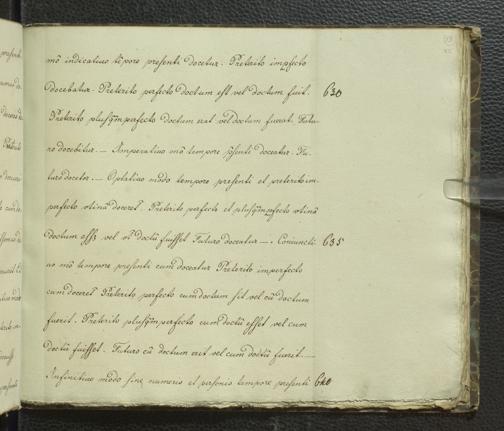 mō indicatiuo tēpore presenti docetur. Preterito impfecto
docebatur. Preterito perfecto doctum est vel doctum fuit. 630
Preterito plusq̄mperfecto doctum erat vel doctum fuerat. Futu-
ro docebitur. — Imperatiuo mō tempore p̄senti doceatur. Fu-
turo docetor. — Optatiuo mōdo tempore presenti et preterito im-
perfecto vtinā doceret. Preterito perfecto et plusq̄mpefecto vtinā
doctum esse vel doctū fuisset Futuro doceatur —. Coniuncti 635
uo mō tempore presenti cum doceatur Preterito imperfecto
cum doceret Preterito perfecto cum doctum sit vel cū doctum
fuerit. Preterito plusq̄mperfecto cum doctū esset vel cum
doctū fuisset. Futuro cū doctum erit vel cum doctū fuerit. —
Infinitiuo mōdo sine numeris et personis tempore presenti 640